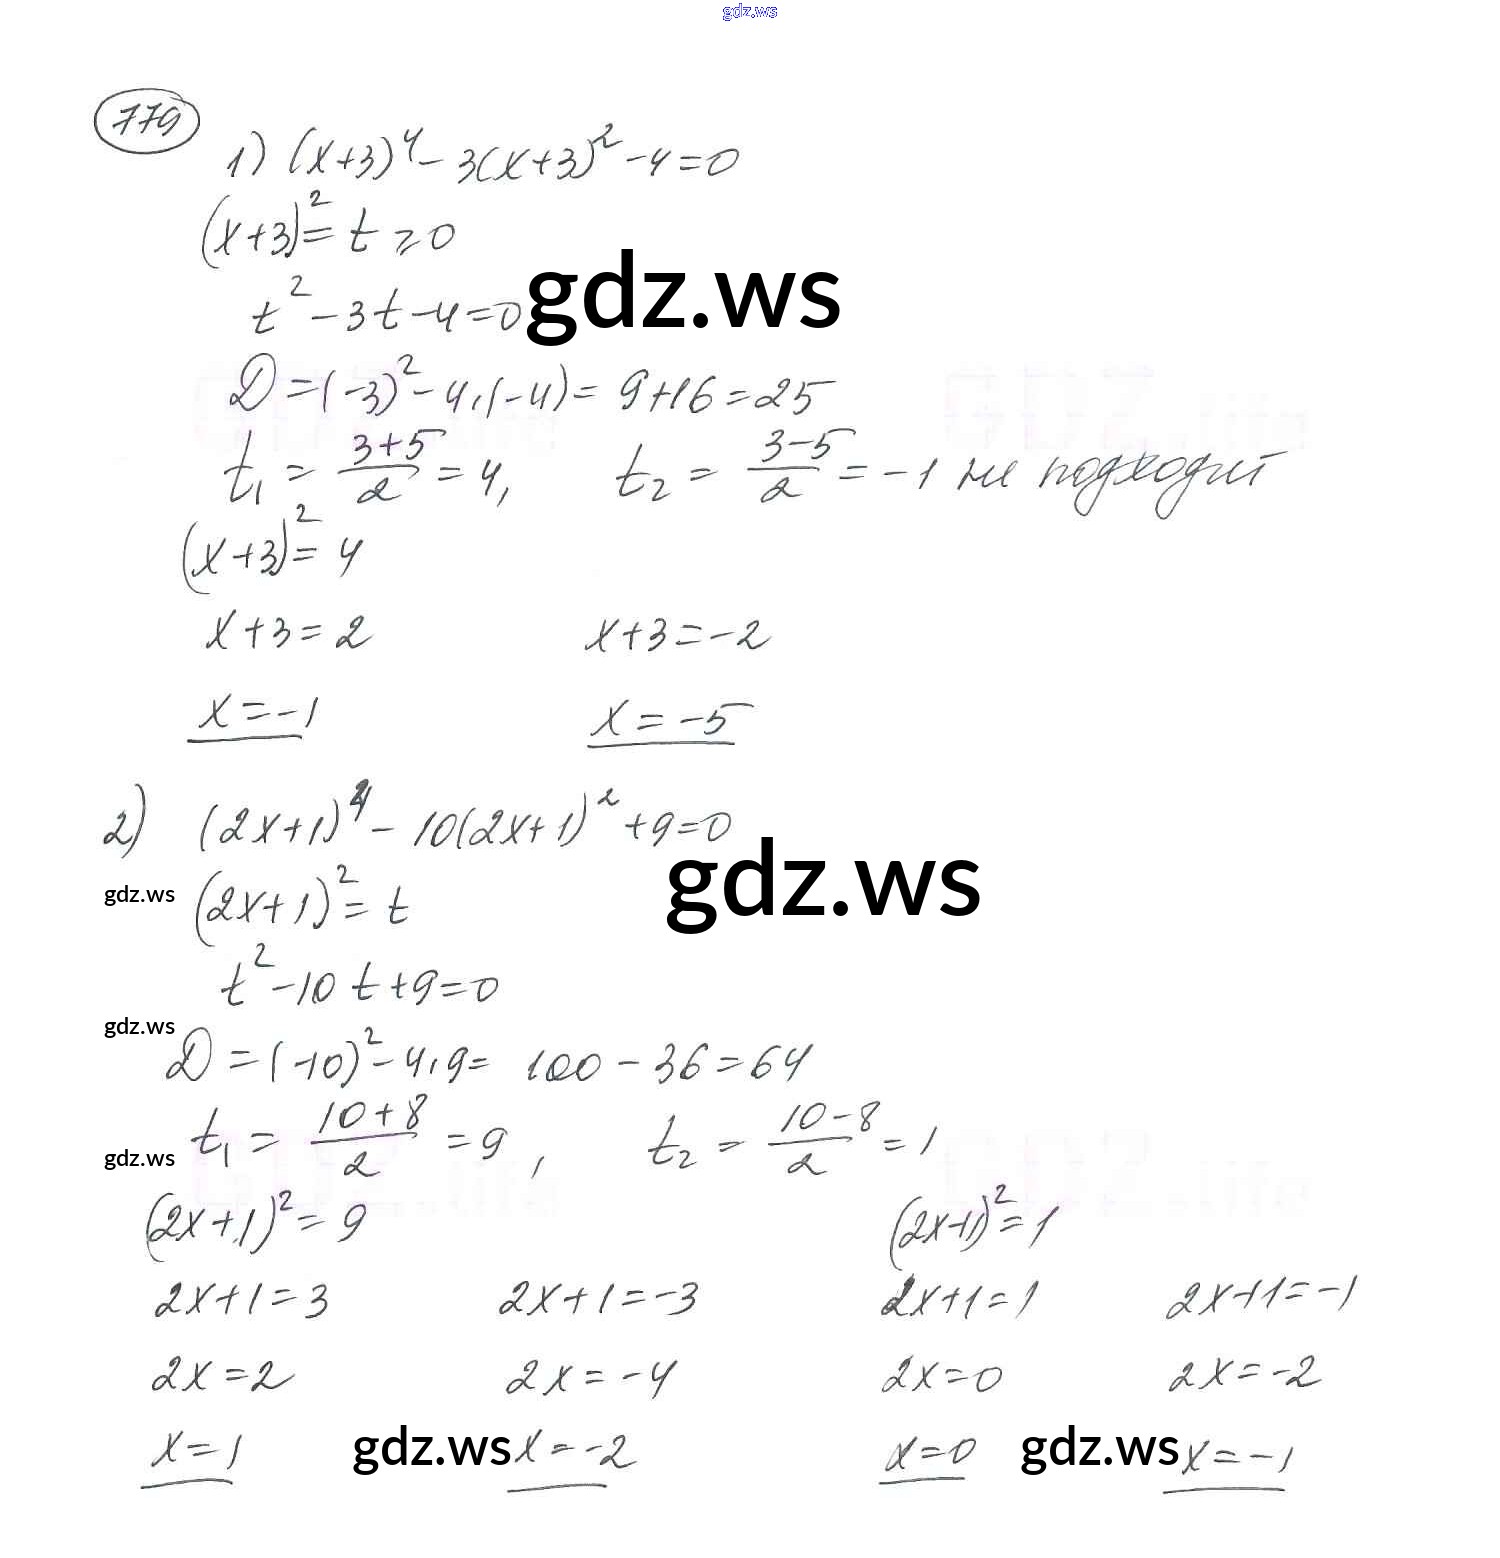 gdz.ws
779
1) (x+3)⁴ - 3(x+3)² - 4 = 0
(x+3)² = t ≥ 0
t² - 3t - 4 = 0
gdz.ws
D = (-3)² - 4·(-4) = 9+16 = 25
GDZ.life GDZ.life
t₁ = (3+5)/2 = 4, t₂ = (3-5)/2 = -1 не подходит
(x+3)² = 4
x+3 = 2 x+3 = -2
x = -1 x = -5
2) (2x+1)⁴ - 10(2x+1)² + 9 = 0
gdz.ws
gdz.ws (2x+1)² = t
t² - 10t + 9 = 0
gdz.ws
D = (-10)² - 4·9 = 100 - 36 = 64
gdz.ws t₁ = (10+8)/2 = 9, t₂ = (10-8)/2 = 1
GDZ.life GDZ.life
(2x+1)² = 9 (2x+1)² = 1
2x+1 = 3 2x+1 = -3 2x+1 = 1 2x+1 = -1
2x = 2 2x = -4 2x = 0 2x = -2
x = 1 gdz.ws x = -2 x = 0 gdz.ws x = -1